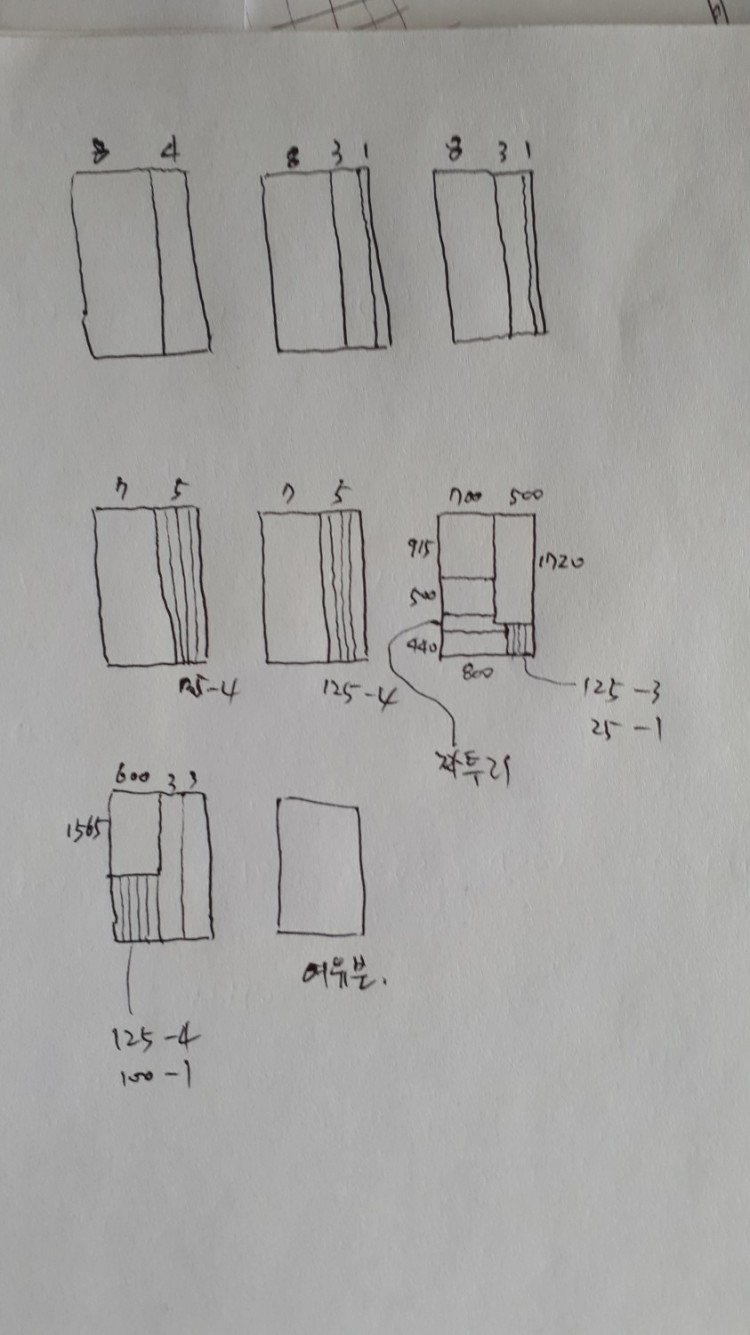 8 4
8 3 1
8 3 1
7 5
125-4
7 5
125-4
700 500
915
1720
500
440
800
125-3
25-1
자투리
600 3 3
1565
125-4
100-1
여유분.